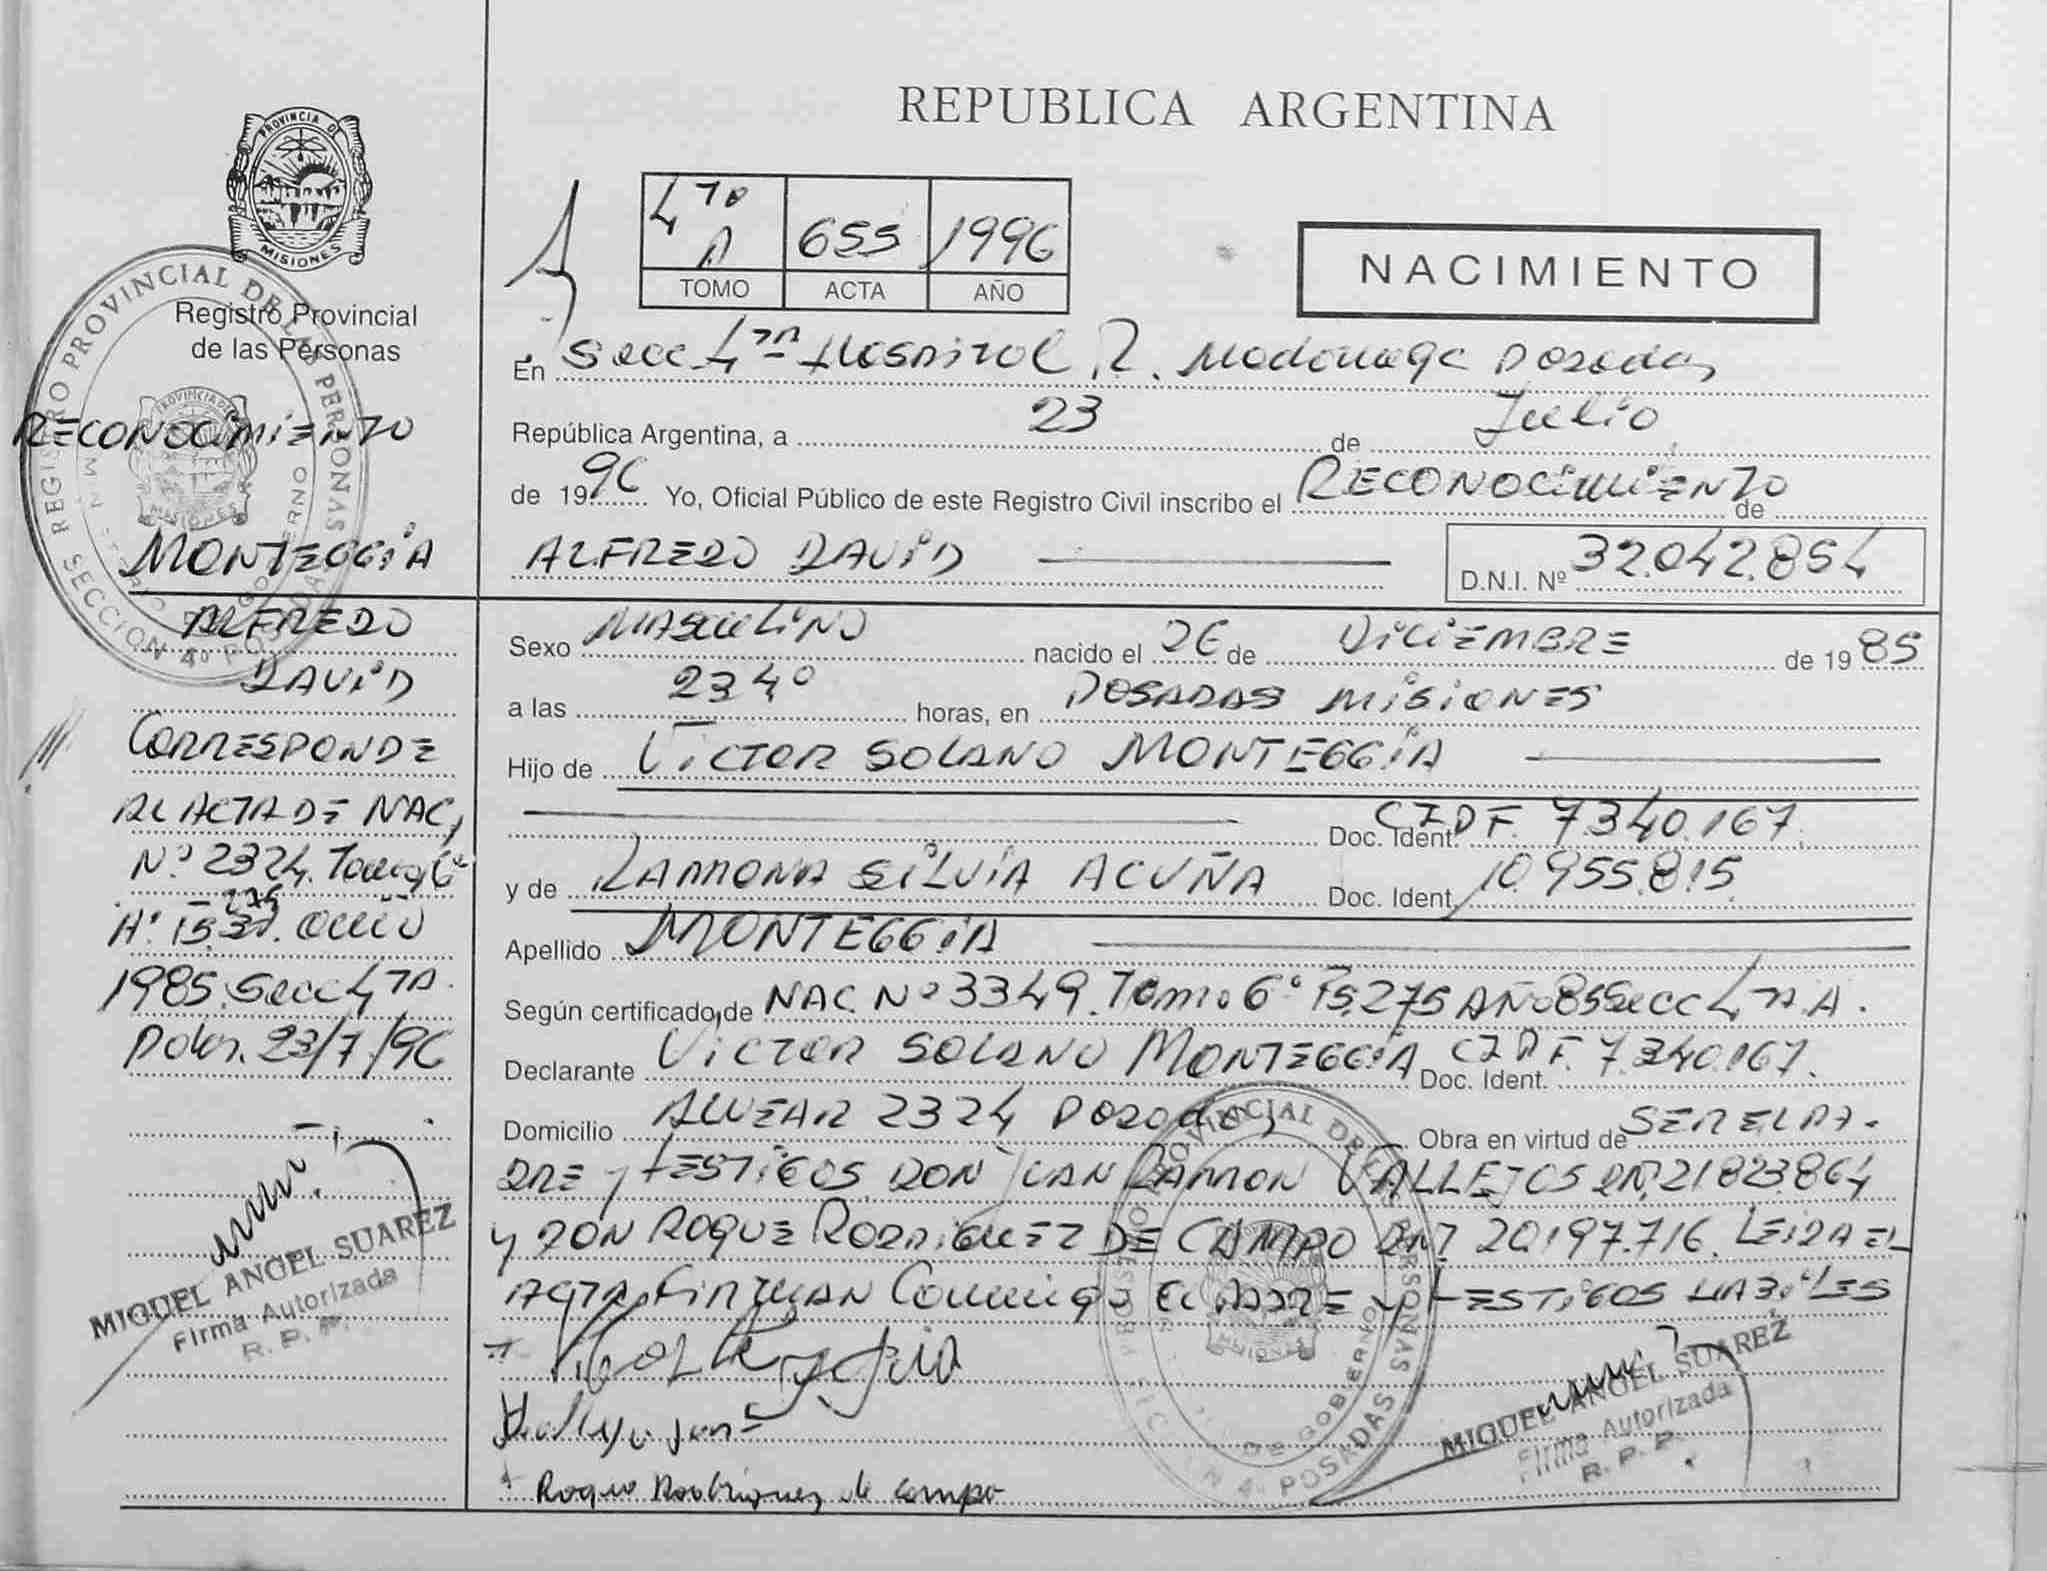 REPUBLICA ARGENTINA
PROVINCIA DE
MISIONES
Registro Provincial
de las Personas
REGISTRO PROVINCIAL DE LAS PERSONAS
SECCION 4º POSADAS
RECONOCIMIENTO
MONTEGGIA
ALFREDO
DAVID
CORRESPONDE
AL ACTA DE NAC,
Nº 2324. Tomo 6º
275
Aº Fs. año
1985. Secc 4TA.
Pdas. 23/7/96
MIGUEL ANGEL SUAREZ
Firma Autorizada
R. P. P.
4TO A 655 1996
TOMO ACTA AÑO
NACIMIENTO
En Secc 4TA Hospital R. Madariaga Posadas
República Argentina, a 23 de Julio
de 1996 Yo, Oficial Público de este Registro Civil inscribo el RECONOCIMIENTO de
ALFREDO DAVID D.N.I. Nº 32.042.854
Sexo MASCULINO nacido el 26 de DICIEMBRE de 1985
a las 2340 horas, en POSADAS MISIONES
Hijo de VICTOR SOLANO MONTEGGIA
Doc. Ident. CIPF. 7340.167.
y de RAMONA SILVIA ACUÑA Doc. Ident. 10.955.815.
Apellido MONTEGGIA
Según certificado de NAC. Nº 3349. Tomo 6º Fs. 275 AÑO 85 Secc 4TA. A.
Declarante VICTOR SOLANO MONTEGGIA Doc. Ident. CIPF. 7.340.167.
Domicilio ALVEAR 2324 Posadas Obra en virtud de SER EL PA-
DRE y TESTIGOS DON JUAN RAMON VALLEJOS DNI. 21823.864
y DON ROQUE RODRIGUEZ DE CAMPO DNI 20.197.716. LEIDA EL
ACTA FIRMAN Conmigo el PADRE y TESTIGOS HABILES
Roque Rodriguez de Campo
REGISTRO PROVINCIAL DE LAS PERSONAS
DE GOBIERNO
MISIONES
SECCION 4º POSADAS
MIGUEL ANGEL SUAREZ
Firma Autorizada
R. P. P.